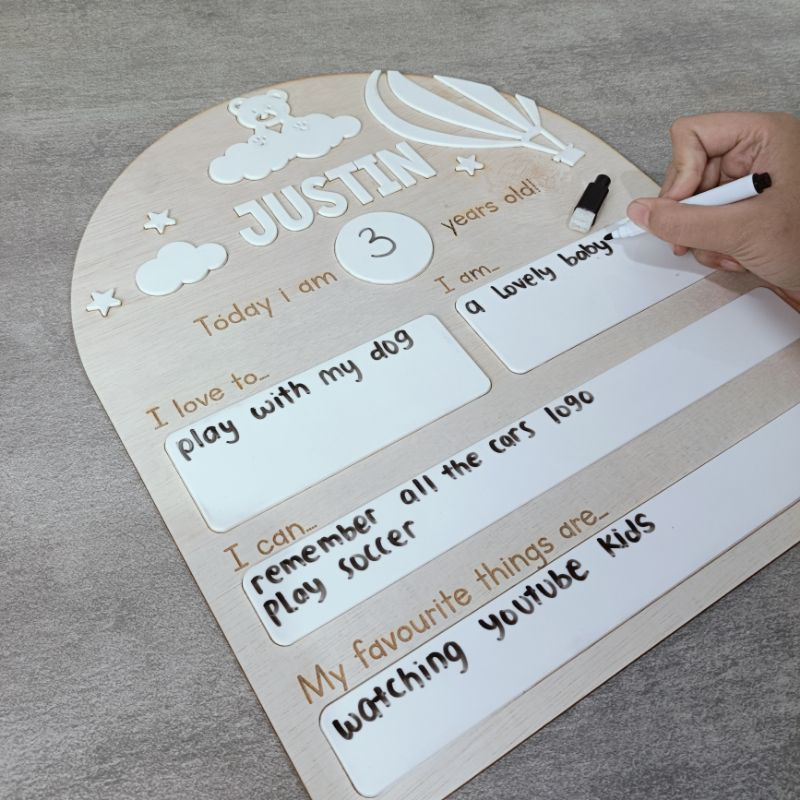 JUSTIN
Today i am 3 years old!
I am...
a lovely baby
I love to...
play with my dog
I can...
remember all the cars logo
play soccer
My favourite things are...
watching youtube kids